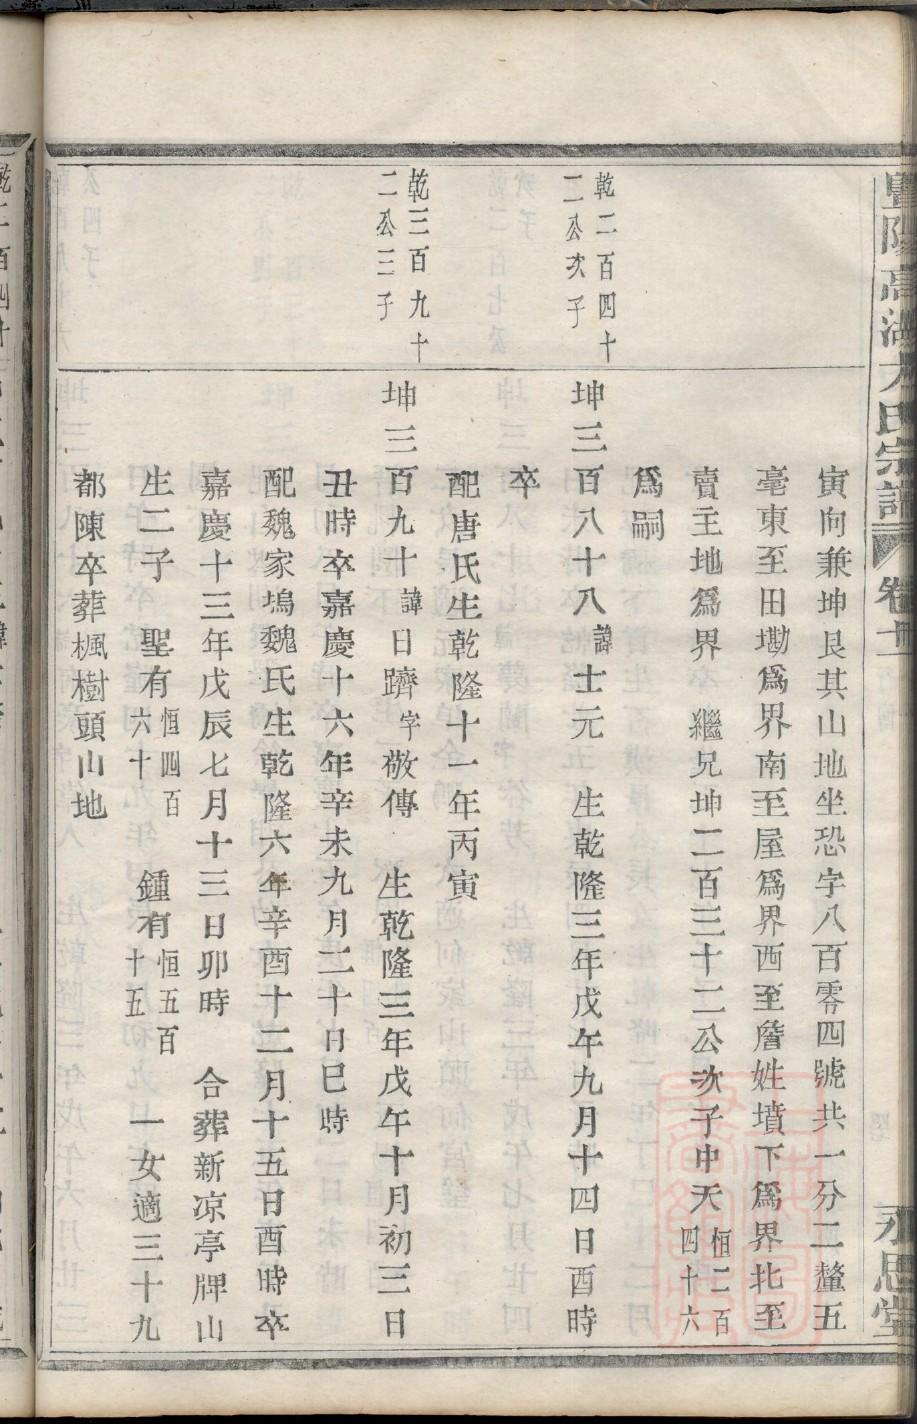 暨陽高湖方氏宗譜 卷十一 永思堂
寅向兼坤艮其山地坐恐字八百零四號共一分二釐五
毫東至田墈爲界南至屋爲界西至詹姓墳下爲界北至
賣主地爲界 繼兄坤二百三十二公次子中天恒二百四十六
爲嗣
乾二百四十二公次子
坤三百八十八諱士元 生乾隆三年戊午九月十四日酉時
卒
配唐氏生乾隆十一年丙寅
乾三百九十二公三子
坤三百九十諱日躋字敬傳 生乾隆三年戊午十月初三日
丑時卒嘉慶十六年辛未九月二十日巳時
配魏家塢魏氏生乾隆六年辛酉十二月十五日酉時卒
嘉慶十三年戊辰七月十三日卯時 合葬新凉亭牌山
生二子 聖有恒四百六十 鍾有恒五百十五 一女適三十九
都陳卒葬楓樹頭山地